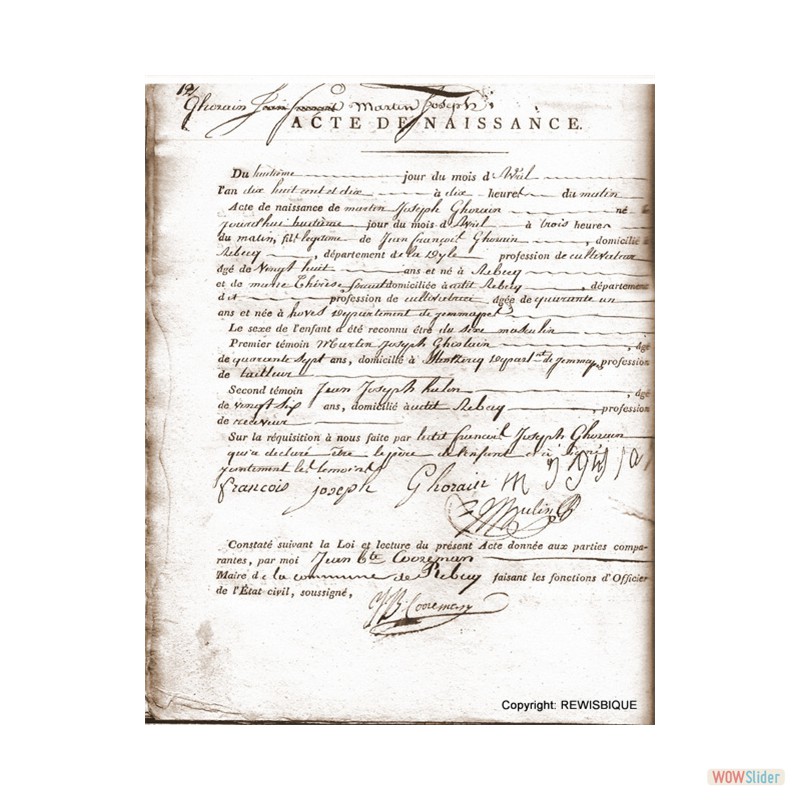 Ghorain Martin Joseph
ACTE DE NAISSANCE.
Du huitième jour du mois d'Avril
l'an dix huit cent et dix à dix heures du matin
Acte de naissance de martin Joseph Ghorain né
jourd'hui huitième jour du mois d'Avril à trois heures
du matin, fils légitime de Jean françois Ghorain, domicilié à
Rebecq, département de la Dyle profession de cultivateur
âgé de vingt huit ans et né à Rebecq
et de marie Thérèse domiciliée audit Rebecq, département
profession de cultivatrice, âgée de quarante un
ans et née à hoves Département de jemmappes
Le sexe de l'enfant a été reconnu être du sexe masculin
Premier témoin Martin Joseph Ghislain, âgé
de quarante sept ans, domicilié à Départ.nt de jemmap, profession
de tailleur
Second témoin Jean Joseph hulin, âgé
de vingt six ans, domicilié audit Rebecq, profession
de receveur
Sur la réquisition à nous faite par ledit françois Joseph Ghorain
qui a déclaré être le père de l'enfant et a signé
les temoins
francois joseph Ghorain
Constaté suivant la Loi et lecture du présent Acte donnée aux parties compa-
rantes, par moi Jean Bte Cooreman
Maire de la commune de Rebecq faisant les fonctions d'Officier
de l'État civil, soussigné,
JB. Cooreman
Copyright: REWISBIQUE
WOWSlider